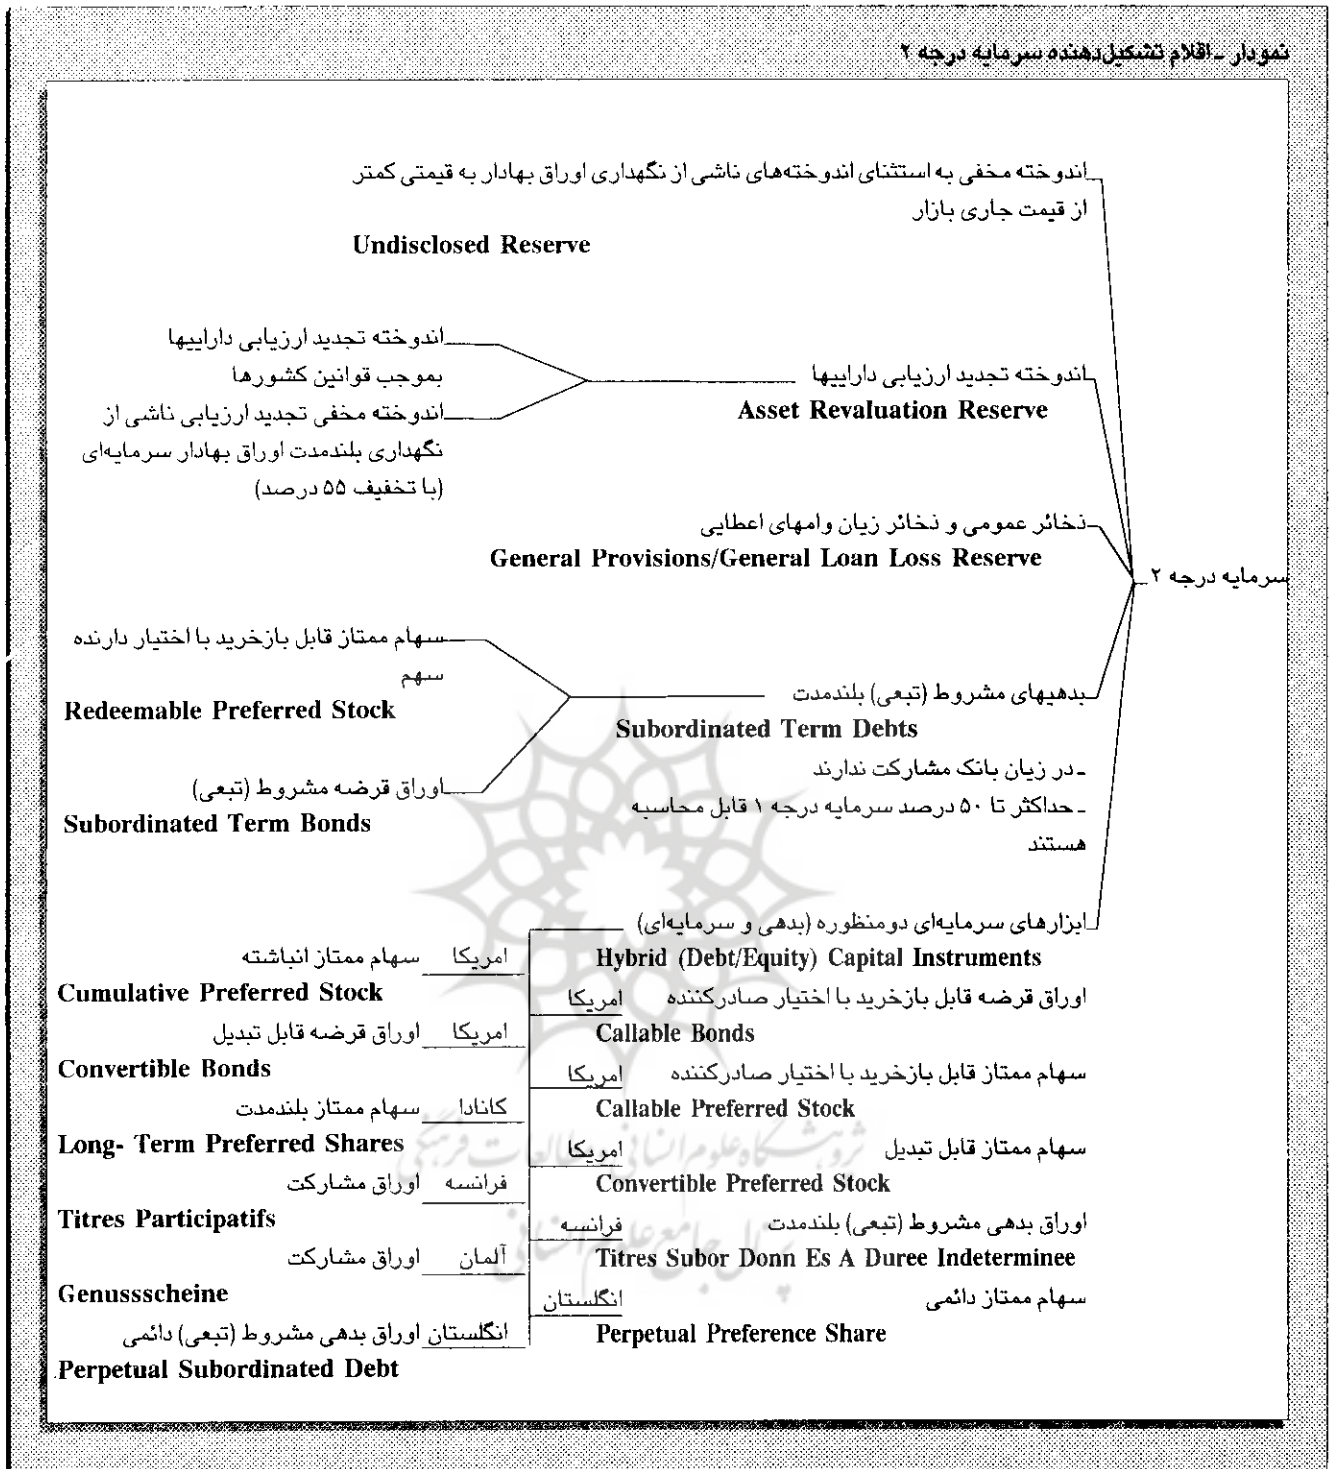 نمودار ـ اقلام تشکیل‌دهنده سرمایه درجه ۲
سرمایه درجه ۲
اندوخته مخفی به استثنای اندوخته‌های ناشی از نگهداری اوراق بهادار به قیمتی کمتر
از قیمت جاری بازار
Undisclosed Reserve
اندوخته تجدید ارزیابی داراییها
Asset Revaluation Reserve
اندوخته تجدید ارزیابی داراییها
بموجب قوانین کشورها
اندوخته مخفی تجدید ارزیابی ناشی از
نگهداری بلندمدت اوراق بهادار سرمایه‌ای
(با تخفیف ۵۵ درصد)
ذخائر عمومی و ذخائر زیان وامهای اعطایی
General Provisions/General Loan Loss Reserve
بدهیهای مشروط (تبعی) بلندمدت
Subordinated Term Debts
ـ در زیان بانک مشارکت ندارند
ـ حداکثر تا ۵۰ درصد سرمایه درجه ۱ قابل محاسبه
هستند
سهام ممتاز قابل بازخرید با اختیار دارنده
سهم
Redeemable Preferred Stock
اوراق قرضه مشروط (تبعی)
Subordinated Term Bonds
ابزارهای سرمایه‌ای دومنظوره (بدهی و سرمایه‌ای)
Hybrid (Debt/Equity) Capital Instruments
اوراق قرضه قابل بازخرید با اختیار صادرکننده امریکا
Callable Bonds
سهام ممتاز قابل بازخرید با اختیار صادرکننده امریکا
Callable Preferred Stock
سهام ممتاز قابل تبدیل امریکا
Convertible Preferred Stock
اوراق بدهی مشروط (تبعی) بلندمدت فرانسه
Titres Subor Donn Es A Duree Indeterminee
سهام ممتاز دائمی انگلستان
Perpetual Preference Share
امریکا سهام ممتاز انباشته
Cumulative Preferred Stock
امریکا اوراق قرضه قابل تبدیل
Convertible Bonds
کانادا سهام ممتاز بلندمدت
Long- Term Preferred Shares
فرانسه اوراق مشارکت
Titres Participatifs
آلمان اوراق مشارکت
Genussscheine
انگلستان اوراق بدهی مشروط (تبعی) دائمی
Perpetual Subordinated Debt
پژوهشگاه علوم انسانی و مطالعات فرهنگی
پرتال جامع علوم انسانی